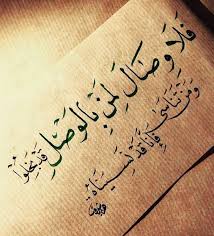 فَلَا وِصَالَ لِمَنْ بِالْوَصْلِ قَدْ بَخِلُوا
وَمَنْ تَنَاسَى فَإِنَّا قَدْ نَسِينَاهُ